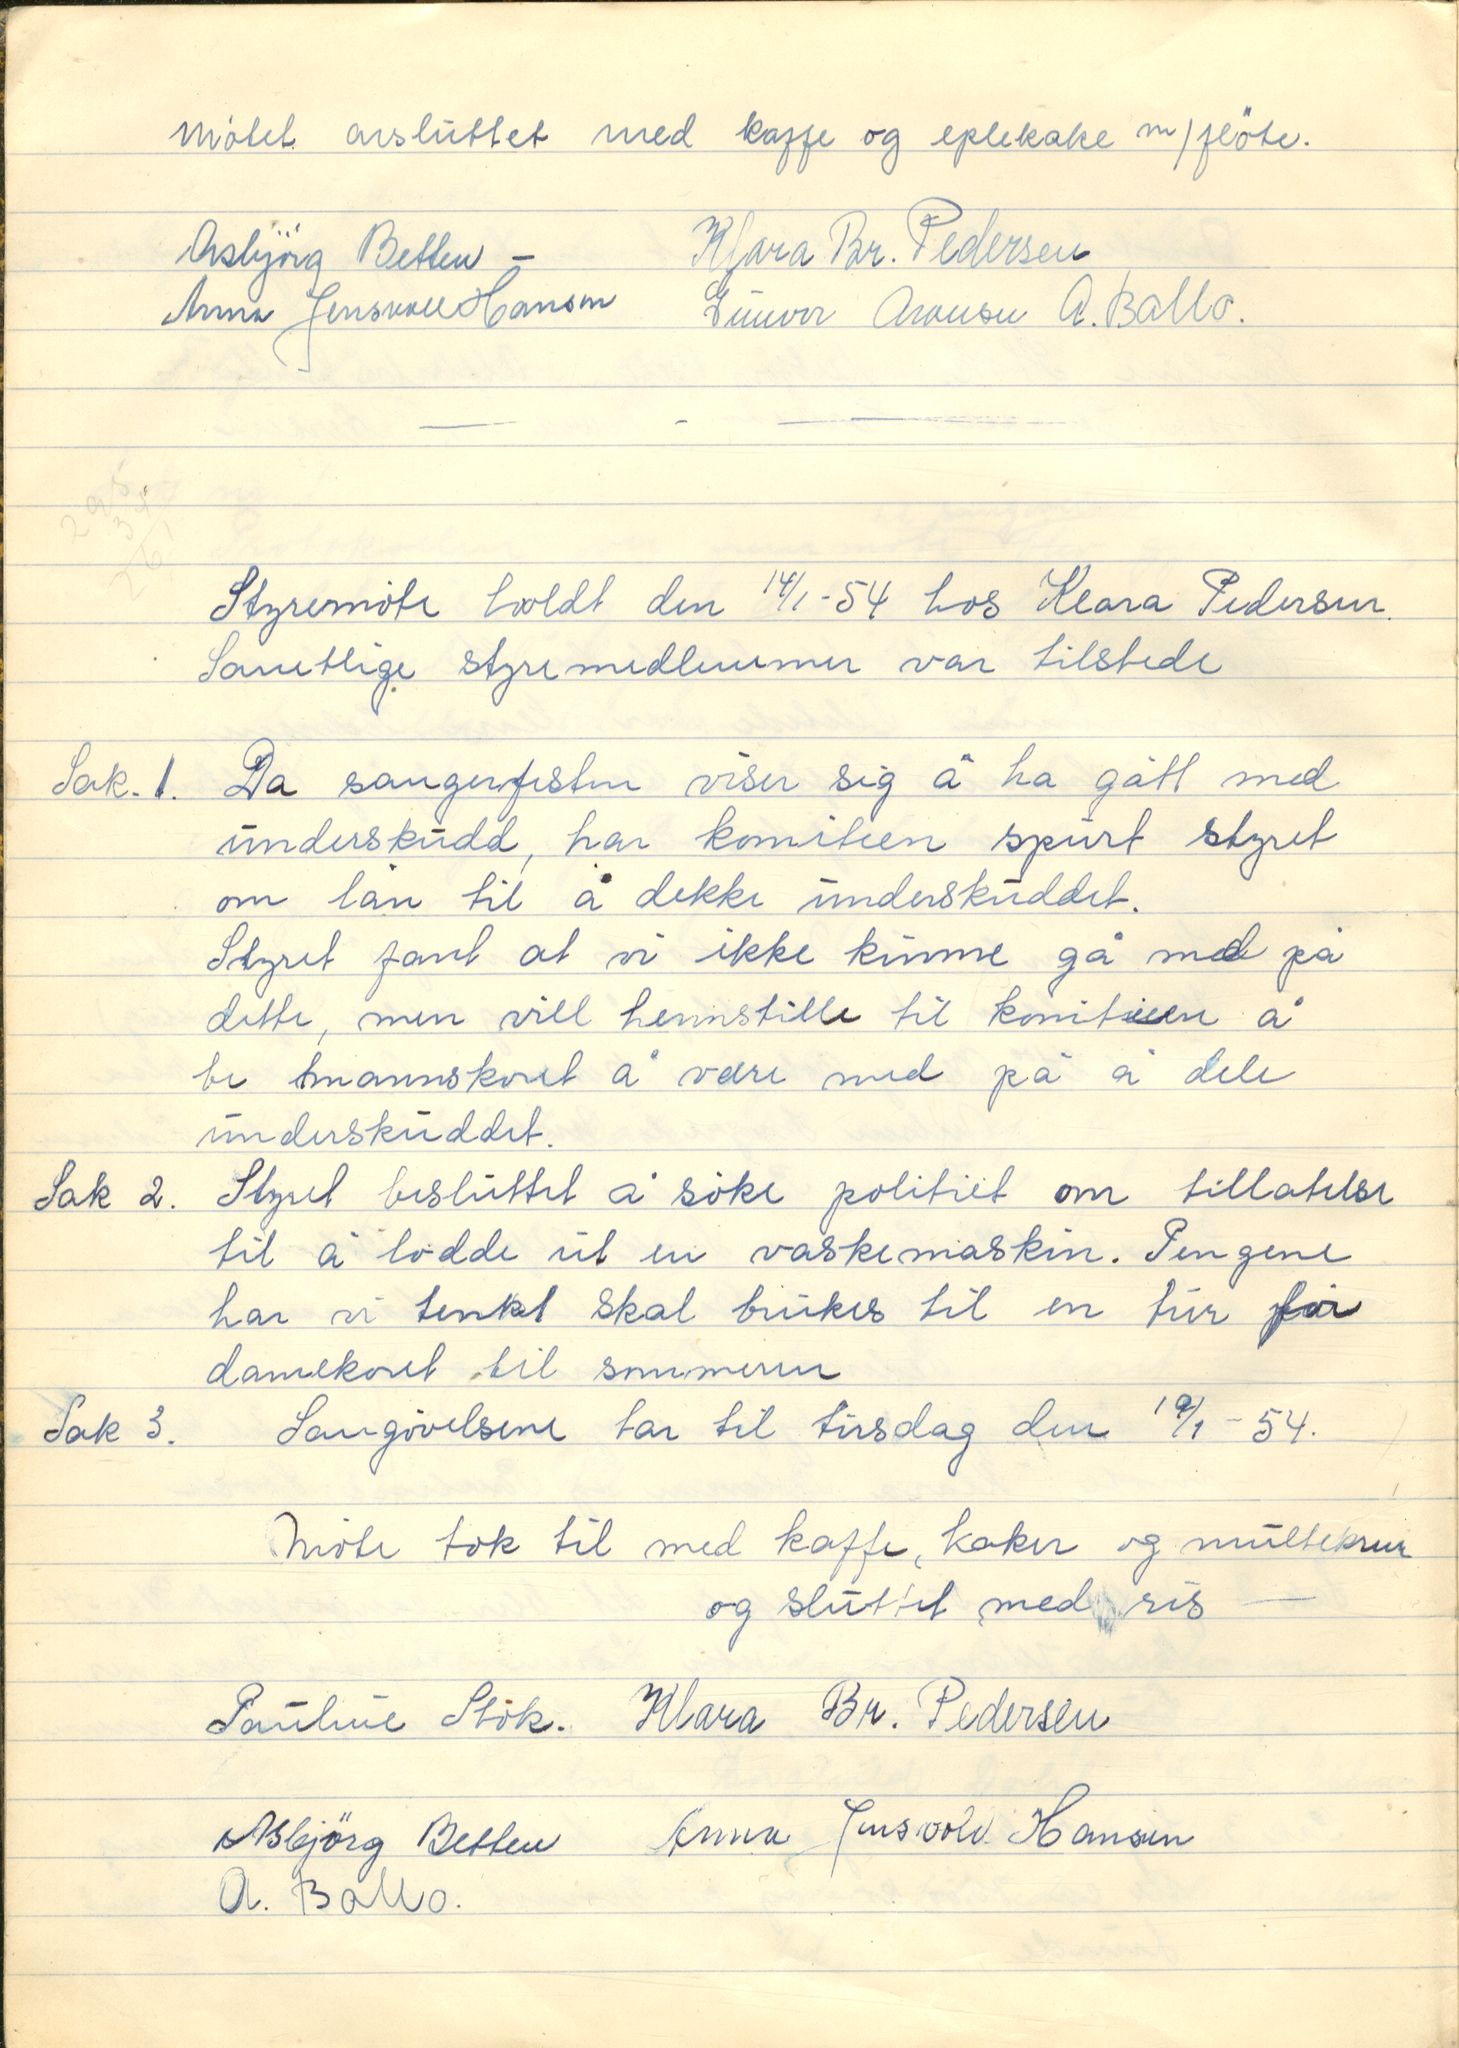 Mötet avsluttet med kaffe og eplekake m/flöte.
Asbjörg Betten - Klara Br. Pedersen
Anna Jensvold Hansen Gunvor Aronsen A. Ballo.
Styremöte holdt den 14/1-54 hos Klara Pedersen.
Samtlige styremedlemmer var tilstede
Sak. 1. Da sangerfesten viser sig å ha gått med
underskudd, har komiteen spurt styret
om lån til å dekke underskuddet.
Styret fant at vi ikke kunne gå med på
dette, men vill henstille til komiteen å
be mannskoret å være med på å dele
underskuddet.
Sak 2. Styret besluttet å söke politiet om tillatelse
til å lodde ut en vaskemaskin. Pengene
har vi tenkt skal brukes til en tur for
damekoret til sommeren
Sak 3. Sangövelsene tar til tirsdag den 19/1-54.
Möte tok til med kaffe, kaker og multekrem
og sluttet med is
Pauline Stök. Klara Br. Pedersen
Asbjörg Betten Anna Jensvold Hansen
A. Ballo.